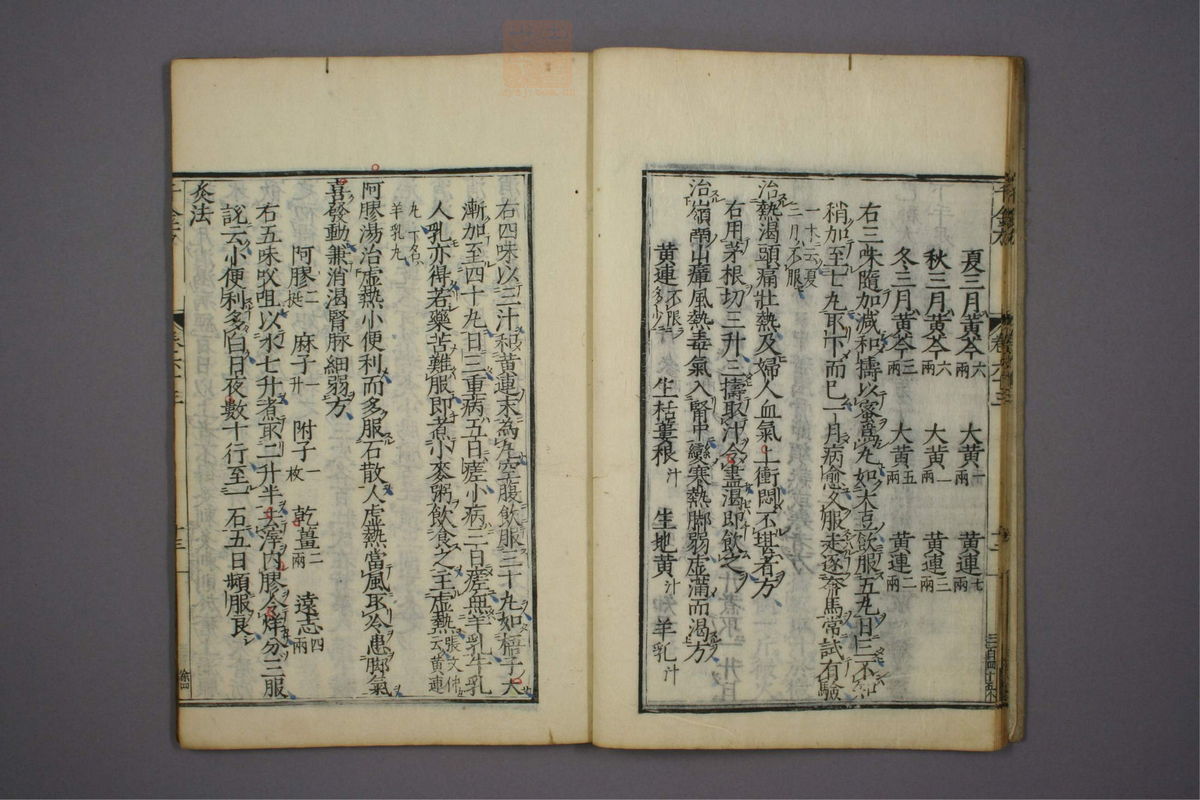 夏三月黄芩六兩 大黄一兩 黄連七兩
秋三月黄芩六兩 大黄一兩 黄連三兩
冬三月黄芩三兩 大黄五兩 黄連二兩
右三味隨加減和擣以蜜爲丸如大豆飲服五丸日三不知
稍加至七丸取下而已一月病愈久服走逐奔馬常試有驗
一本云夏三月不服
治熱渴頭痛壯熱及婦人血氣上衝悶不堪者方
右用茅根切三升三擣取汁令盡渴即飲之
治嶺南山瘴風熱毒氣入腎中變寒熱脚弱虚滿而渴方
黄連不限多少 生栝蔞根汁 生地黄汁 羊乳汁
右四味以三汁和黄連末為丸空腹飲服三十丸如梧子大
漸加至四十丸日三重病五日瘥小病三日瘥無羊乳牛乳
人乳亦得若藥苦難服即煮小麥粥飲食之主虚熱張文仲云黄連
丸一名羊乳丸
阿膠湯治虚熱小便利而多服石散人虚熱當風取冷患脚氣
喜發動兼消渴腎脉細弱方
阿膠二挺 麻子一升 附子一枚 乾薑二兩 遠志四兩
右五味㕮咀以水七升煮取二升半去滓内膠令烊分三服
說云小便利多白日夜數十行至一石五日頻服良
灸法